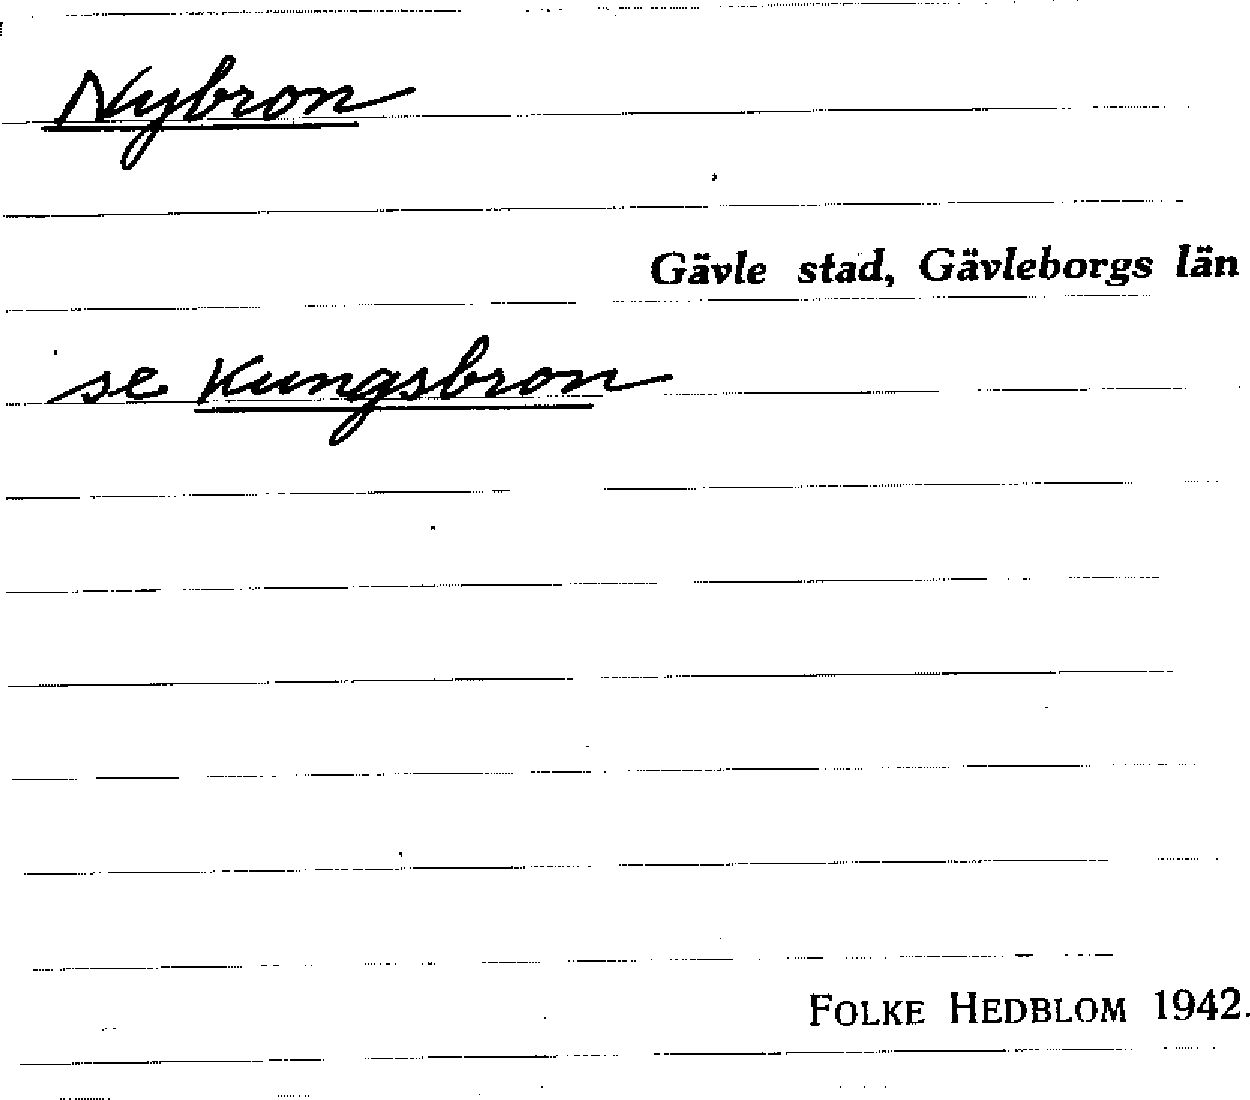 Nybron
Gävle stad, Gävleborgs län
se Kungsbron
FOLKE HEDBLOM 1942.